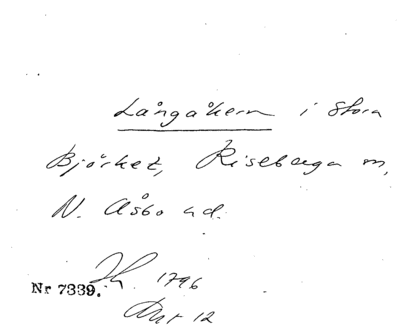 Långåkern i Stora
Björket, Riseberga sn,
N. Åsbo hd.
1796
Nr 7339.
Akt 12